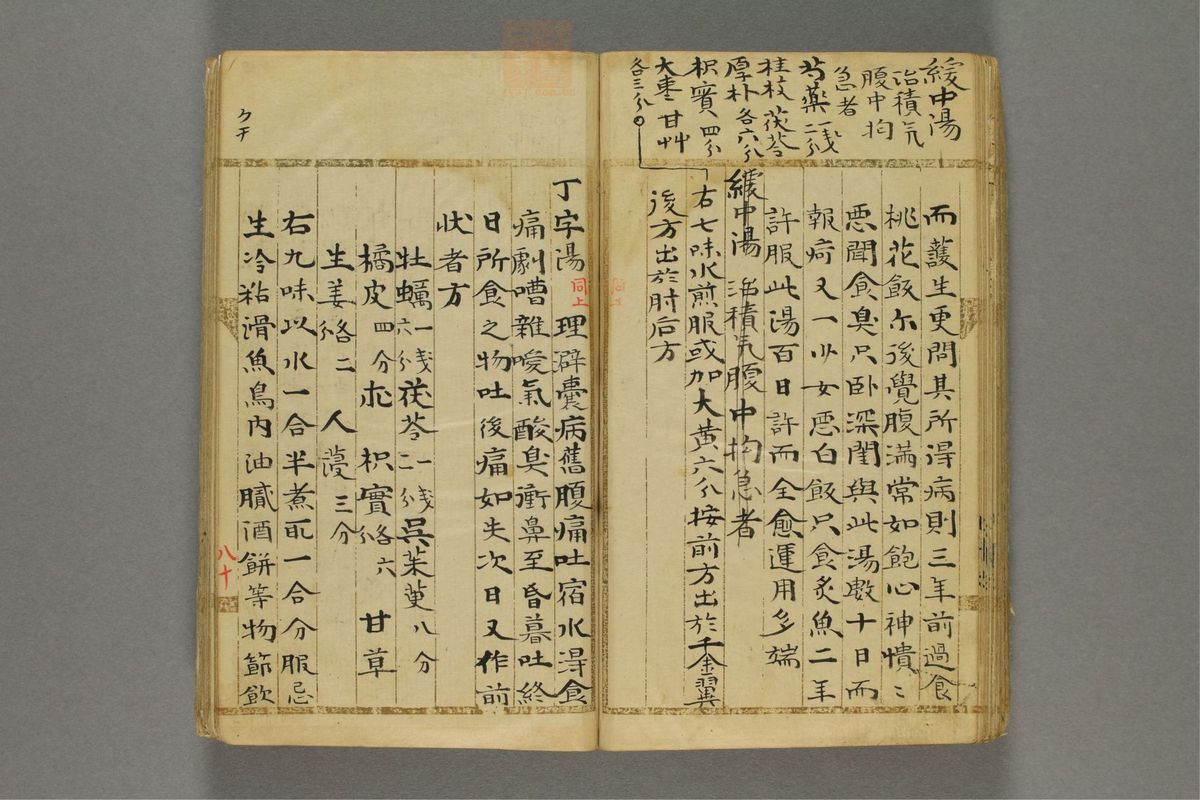 緩中湯
治積氣
腹中拘
急者
芍藥一戔二分
桂枝 茯苓
厚朴各六分
枳實四分
大棗 甘艸
各三分
而護生更問其所得病則三年前過食
桃花飯尔後覺腹満常如飽心神憒〻
惡聞食臭只卧深閨與此湯數十日而
報荷又一少女惡白飯只食炙魚二年
許服此湯百日許而全愈運用多端
緩中湯 治積氣腹中拘急者
右七味水煎服或加大黄六分按前方出於千金翼
後方出於肘后方
丁字湯 同上 理澼囊病舊腹痛吐宿水淂食
痛劇嘈雜噯氣酸臭衝鼻至昏暮吐終
日所食之物吐後痛如失次日又作前
狀者方
牡蠣一戔六分 茯苓一戔二分 呉茱萸八分
橘皮四分 朮 枳實各六分 甘草
生姜各二 人蓡三分
右九味以水一合半煮取一合分服忌
生冷粘滑魚鳥内油膩酒餅等物節飲
八十
ケチ